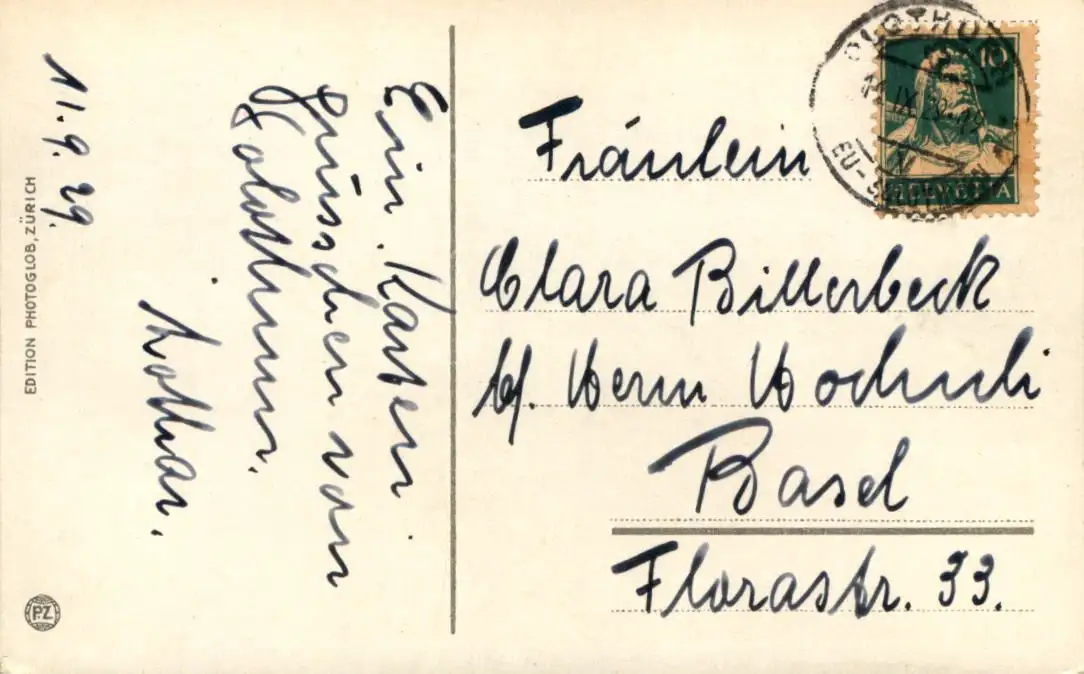 11.9.29.
Ein Karten
grüsschen von
Solothurn.
Lothar.
EDITION PHOTOGLOB, ZÜRICH
P.Z
Fräulein
Clara Billerbeck
b/. Herrn Hochuli
Basel
Florastr. 33.
SOLOTHURN
10
HELVETIA